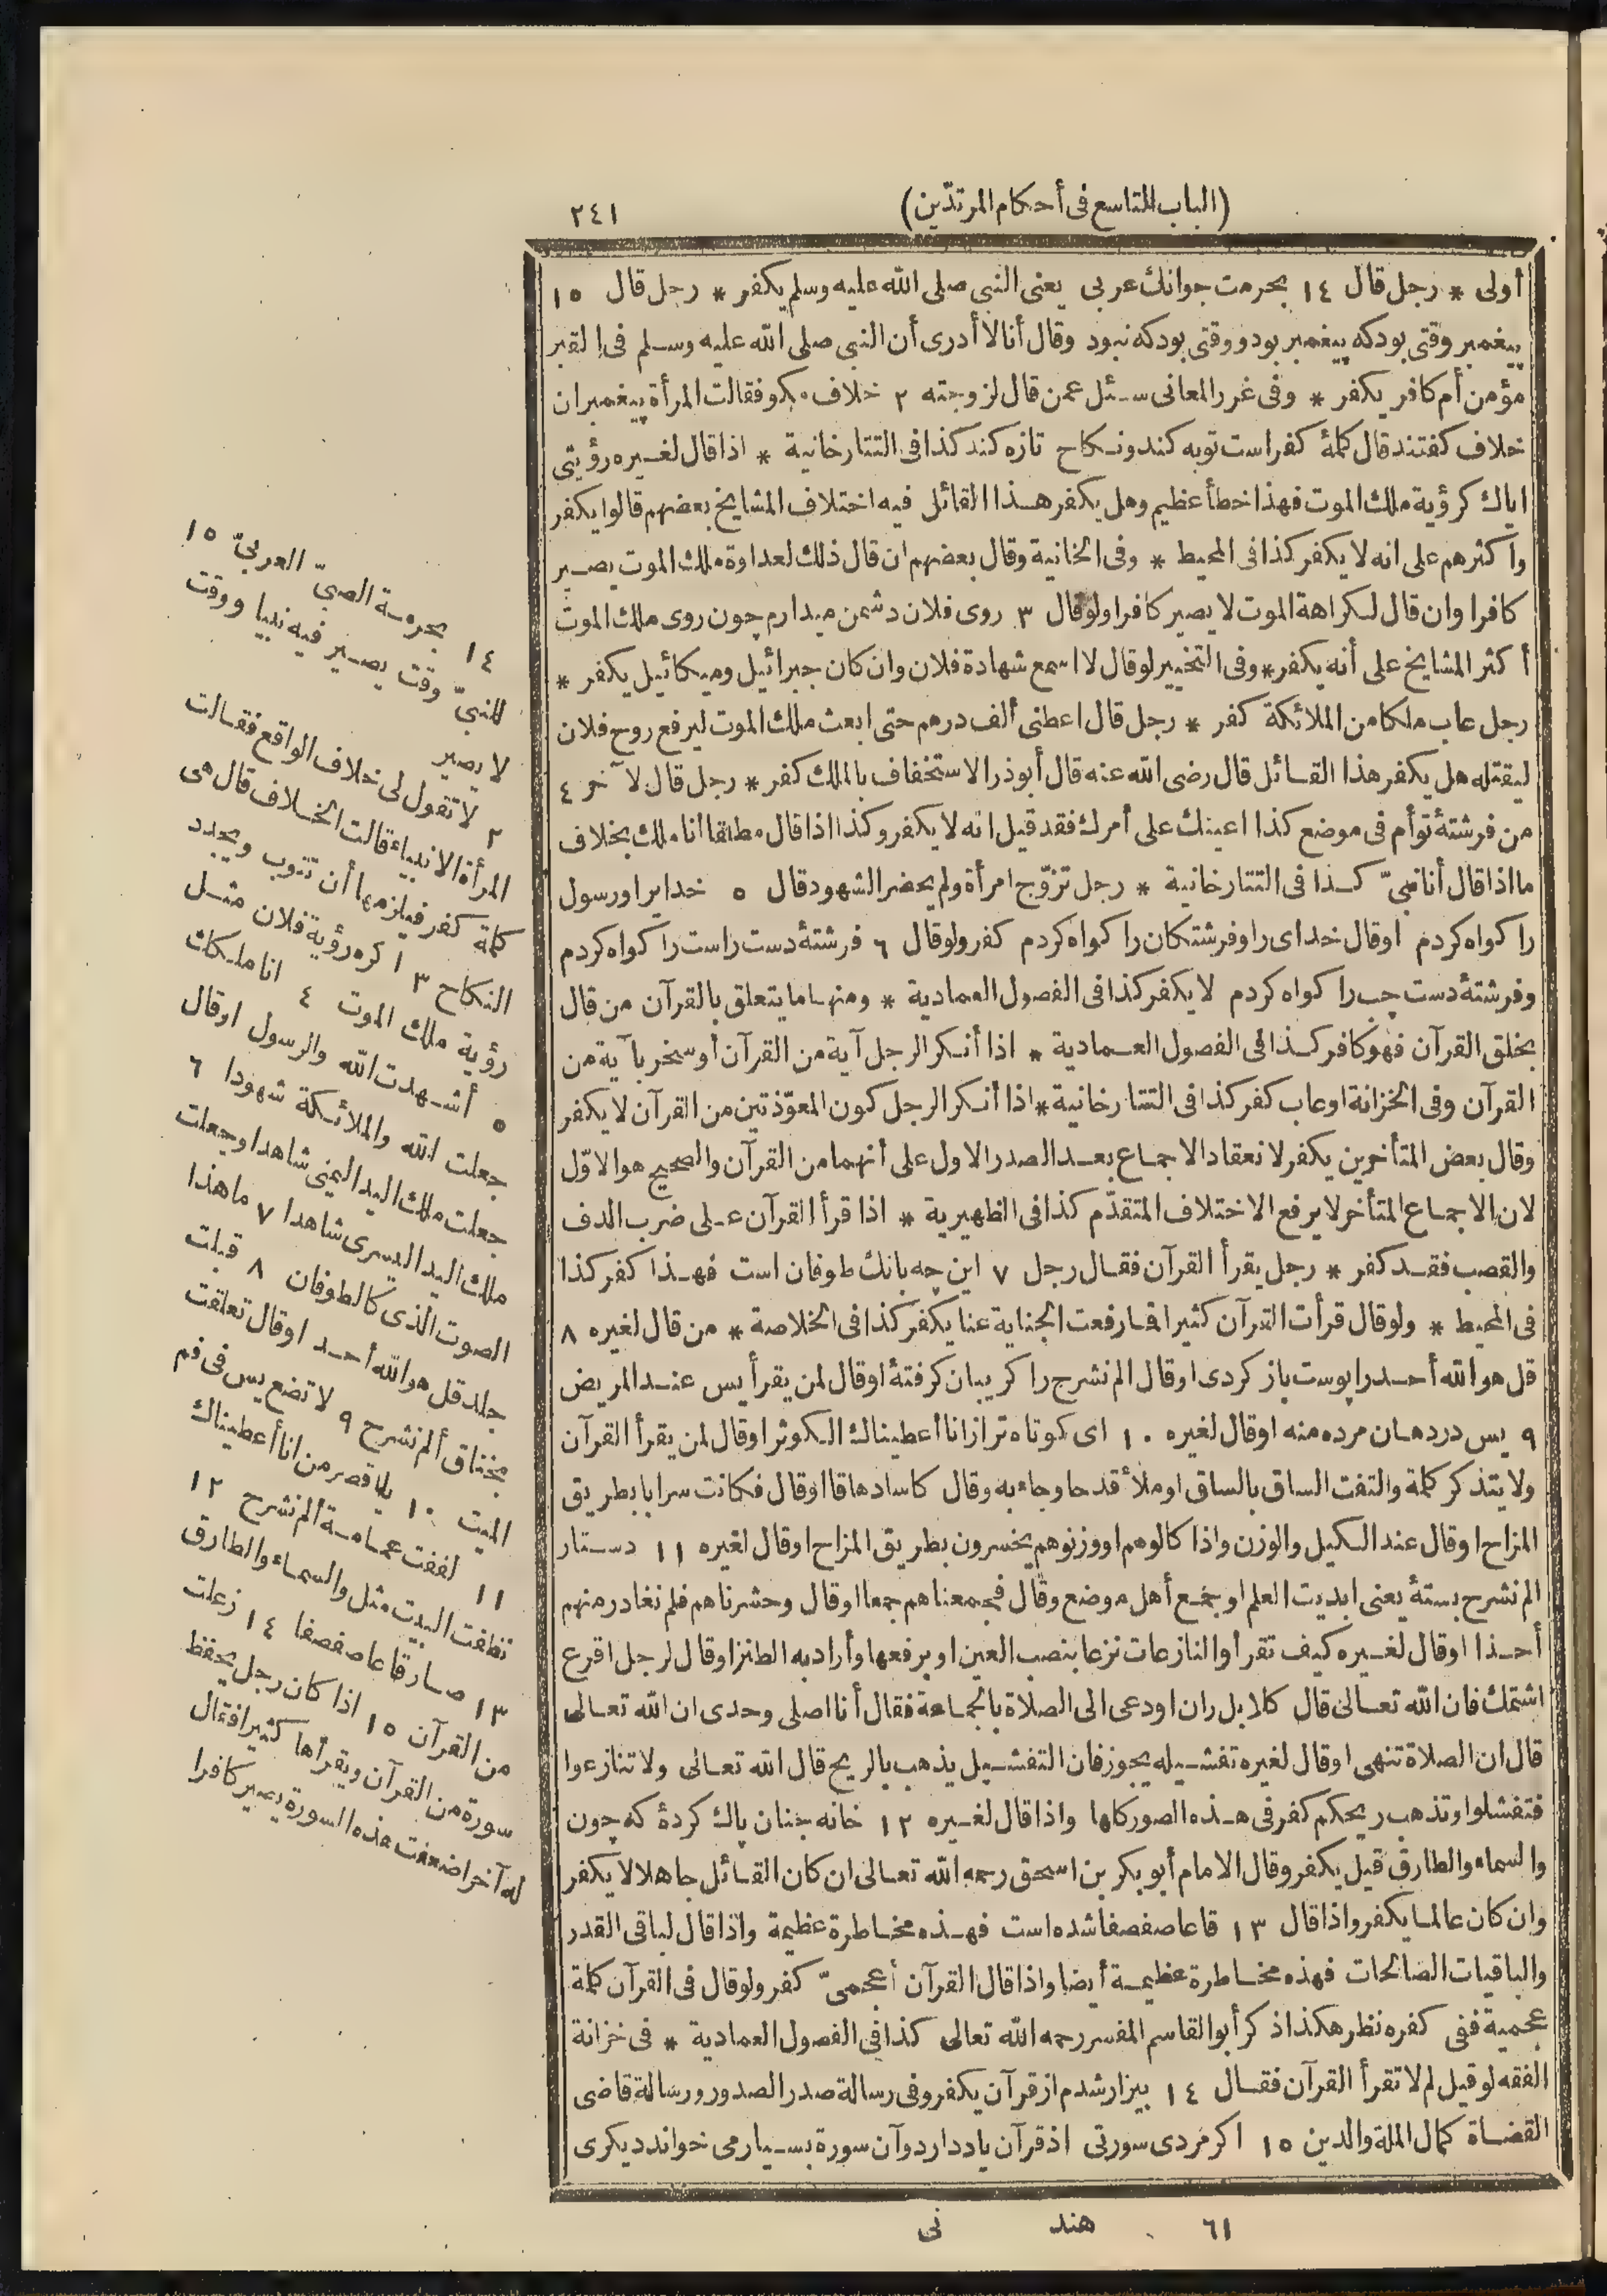 (الباب التاسع فى أحكام المرتدّين)
٢٤١
أولى * رجل قال ١٤ بحرمت جوانك عربى يعنى النبى صلى الله عليه وسلم يكفر * رجل قال ١٥
پيغمبر وقتى بود كه پيغمبر بود ووقتى بود كه نبود وقال أنا لا أدرى أن النبى صلى الله عليه وسلم فى القبر
مؤمن أم كافر يكفر * وفى غرر المعانى سئل عمن قال لزوجته ٢ خلاف مكو فقالت المرأة پيغمبران
خلاف كفتند قال كلمۀ كفر است توبه كند ونكاح تازه كند كذا فى التتارخانية * اذا قال لغيره رؤيتى
اياك كرؤية ملك الموت فهذا خطأ عظيم وهل يكفر هذا القائل فيه اختلاف المشايخ بعضهم قالوا يكفر
وأكثرهم على انه لا يكفر كذا فى المحيط * وفى الخانية وقال بعضهم ان قال ذلك لعداوة ملك الموت يصير
كافرا وان قال لكراهة الموت لا يصير كافرا ولو قال ٣ روى فلان دشمن ميدارم چون روى ملك الموت
أكثر المشايخ على أنه يكفر * وفى التخيير لو قال لا اسمع شهادة فلان وان كان جبرائيل وميكائيل يكفر *
رجل عاب ملكا من الملائكة كفر * رجل قال اعطنى ألف درهم حتى ابعث ملك الموت ليرفع روح فلان
ليقتله هل يكفر هذا القائل قال رضى الله عنه قال أبوذر الاستخفاف بالملك كفر * رجل قال لآخر ٤
من فرشتۀ توأم فى موضع كذا اعينك على أمرك فقد قيل انه لا يكفر وكذا اذا قال مطلقا انا ملك بخلاف
ما اذا قال أنا نبىّ كذا فى التتارخانية * رجل تزوّج امرأة ولم يحضر الشهود قال ٥ خدايرا ورسول
را كواه كردم اوقال خداى را وفرشتكان را كواه كردم كفر ولو قال ٦ فرشتۀ دست راست را كواه كردم
وفرشتۀ دست چپ را كواه كردم لا يكفر كذا فى الفصول العمادية * ومنها ما يتعلق بالقرآن من قال
بخلق القرآن فهو كافر كذا فى الفصول العمادية * اذا أنكر الرجل آية من القرآن أو سخر بآية من
القرآن وفى الخزانة اوعاب كفر كذا فى التتارخانية * اذا أنكر الرجل كون المعوّذتين من القرآن لا يكفر
وقال بعض المتأخرين يكفر لانعقاد الاجماع بعد الصدر الاول على أنهما من القرآن والصحيح هو الاوّل
لان الاجماع المتأخر لا يرفع الاختلاف المتقدّم كذا فى الظهيرية * اذا قرأ القرآن على ضرب الدف
والقصب فقد كفر * رجل يقرأ القرآن فقال رجل ٧ اين چه بانك طوفان است فهذا كفر كذا
فى المحيط * ولو قال قرأت القرآن كثيرا فما رفعت الجناية عنا يكفر كذا فى الخلاصة * من قال لغيره ٨
قل هو الله أحد را پوست باز كردى اوقال الم نشرح را كريبان كرفتۀ اوقال لمن يقرأ يس عند المريض
٩ يس در دهان مرده منه اوقال لغيره ١٠ اى كوتاه تر از انا أعطيناك الكوثر اوقال لمن يقرأ القرآن
ولا يتذكر كلمة والتفت الساق بالساق اوملأ قدحا وجاء به وقال كاسا دهاقا اوقال فكانت سرابا بطريق
المزاح اوقال عند الكيل والوزن واذا كالوهم اووزنوهم يخسرون بطريق المزاح اوقال لغيره ١١ دستار
الم نشرح بستۀ يعنى ابديت العلم اوجمع أهل موضع وقال فجمعناهم جمعا اوقال وحشرناهم فلم نغادر منهم
أحدا اوقال لغيره كيف تقرأ والنازعات نزعا بنصب العين اوبرفعها وأراد به الطنز اوقال لرجل اقرع
اشتمك فان الله تعالى قال كلا بل ران اودعى الى الصلاة بالجماعة فقال أنا اصلى وحدى ان الله تعالى
قال ان الصلاة تنهى اوقال لغيره تفشيله يجوز فان التفشيل يذهب بالريح قال الله تعالى ولا تنازعوا
فتفشلوا وتذهب ريحكم كفر فى هذه الصور كلها واذا قال لغيره ١٢ خانه چنان پاك كردۀ كه چون
والسماء والطارق قيل يكفر وقال الامام أبو بكر بن اسحق رحمه الله تعالى ان كان القائل جاهلا لا يكفر
وان كان عالما يكفر واذا قال ١٣ قاعا صفصفا شده است فهذه مخاطرة عظيمة واذا قال لباقى القدر
والباقيات الصالحات فهذه مخاطرة عظيمة أيضا واذا قال القرآن أعجمىّ كفر ولو قال فى القرآن كلمة
عجمية ففى كفره نظر هكذا ذكر أبو القاسم المفسر رحمه الله تعالى كذا فى الفصول العمادية * فى خزانة
الفقه لو قيل لم لا تقرأ القرآن فقال ١٤ بيزار شدم از قرآن يكفر وفى رسالة صدر الصدور ورسالة قاضى
القضاة كمال الملة والدين ١٥ اكر مردى سورتى از قرآن ياد دارد وآن سورة بسيار مى خواند ديكرى
١٤ بحرمة الصبىّ العربىّ ١٥
للنبىّ وقت يصير فيه نبيا ووقت
لا يصير
٢ لا تقول لى خلاف الواقع فقالت
المرأة الانبياء قالت الخلاف قال هى
كلمة كفر فيلزمها أن تتوب ويجدد
النكاح ٣ اكره رؤية فلان مثل
رؤية ملك الموت ٤ انا ملكك
٥ أشهدت الله والرسول اوقال
جعلت الله والملائكة شهودا ٦
جعلت ملك اليد اليمنى شاهدا وجعلت
ملك اليد اليسرى شاهدا ٧ ما هذا
الصوت الذى كالطوفان ٨ قبلت
جلد قل هو الله أحد اوقال تعلقت
بخناق ألم نشرح ٩ لا تضع يس فى فم
الميت ١٠ يا اقصر من انا أعطيناك
١١ لففت عمامة الم نشرح ١٢
نظفت البيت مثل والسماء والطارق
١٣ صار قاعا صفصفا ١٤ زعلت
من القرآن ١٥ اذا كان رجل يحفظ
سورة من القرآن ويقرأها كثيرا فقال
له آخر اضعفت هذه السورة يصير كافرا
٦١ هند نى